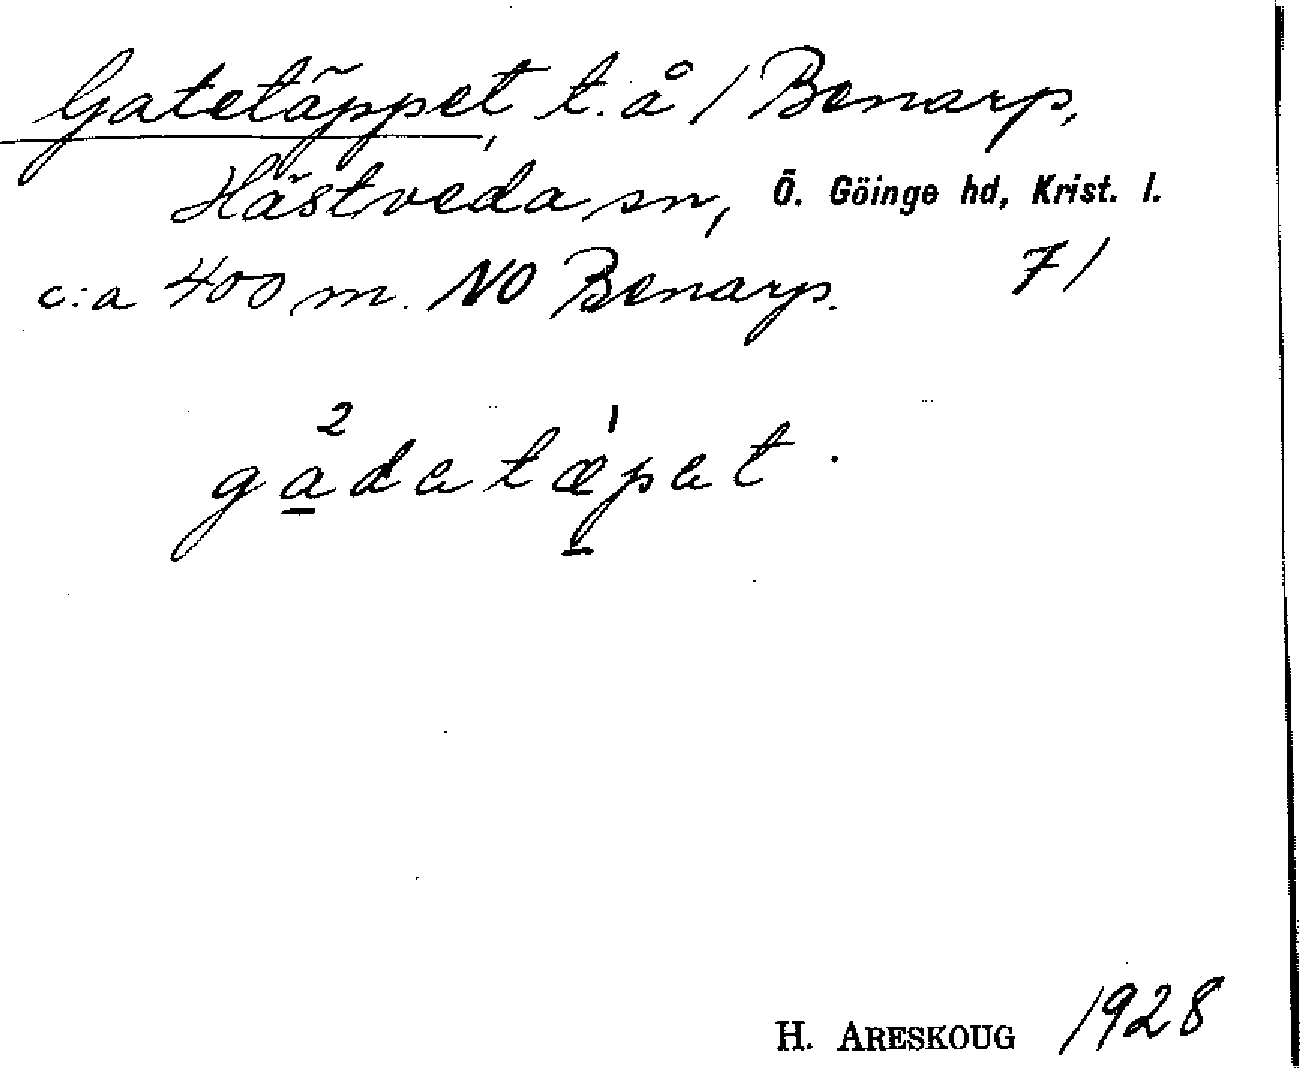 Gatetäppet, t. å / Benarp,
Hästveda sn, Ö. Göinge hd, Krist. l.
c:a 400 m. NO Benarp. 71
gadatæpat.
H. ARESKOUG 1928